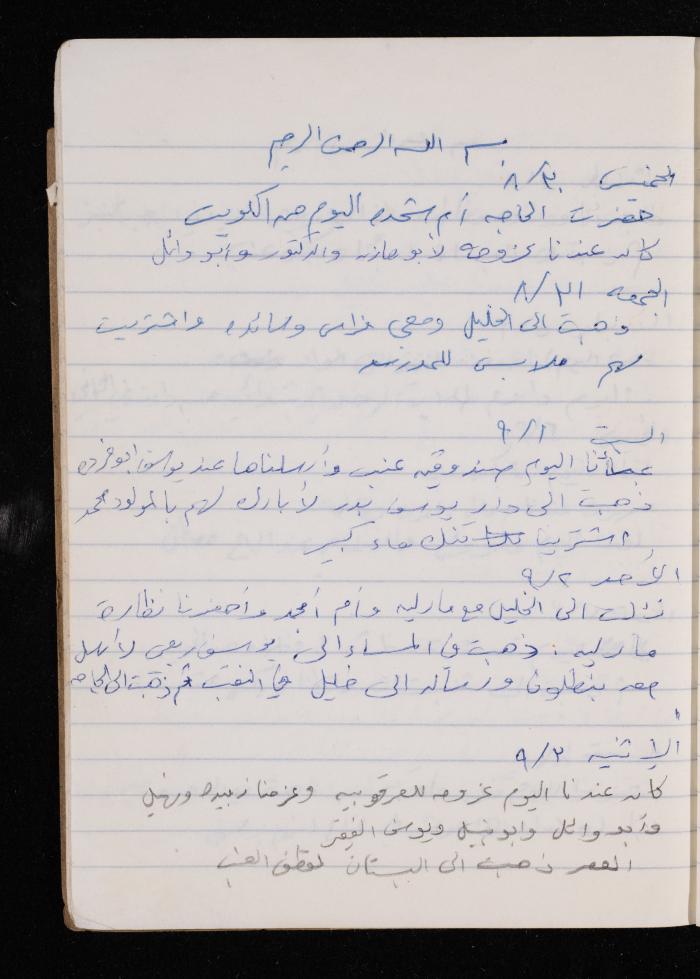 بسم الله الرحمن الرحيم
الخميس ٨/٣٠
حضرت الحاجه أم شحده اليوم من الكويت
كان عندنا عزومه لأبو مازن والدكتور وأبو وائل
الجمعه ٨/٣١
ذهبت الى الخليل ومعي فراس وسائده واشتريت
لهم ملابس للمدرسه
السبت ٩/١
عبأنا اليوم صندوقيه عنب وأرسلناها عند يوسف ابو
ذهبت الى دار يوسف بدر لأبارك لهم بالمولود محمد
اشترينا تنك ماء كبير
الأحد ٩/٢
نزلت الى الخليل مع مارليه وأم أمجد وأحضرنا نظارة
مارليه. ذهبت في المساء الى يوسف ربعي لأرسل
معه بنطلون ورساله الى خليل في النقب ثم ذهبت الى الحاجه
الإثنين ٩/٣
كان عندنا اليوم عزومه للعرقوبيه وعزمنا زبيده ونبيل
وأبو وائل وابو نبيل ويوسف الفقير
العصر ذهبت الى البستان لقطف العنب